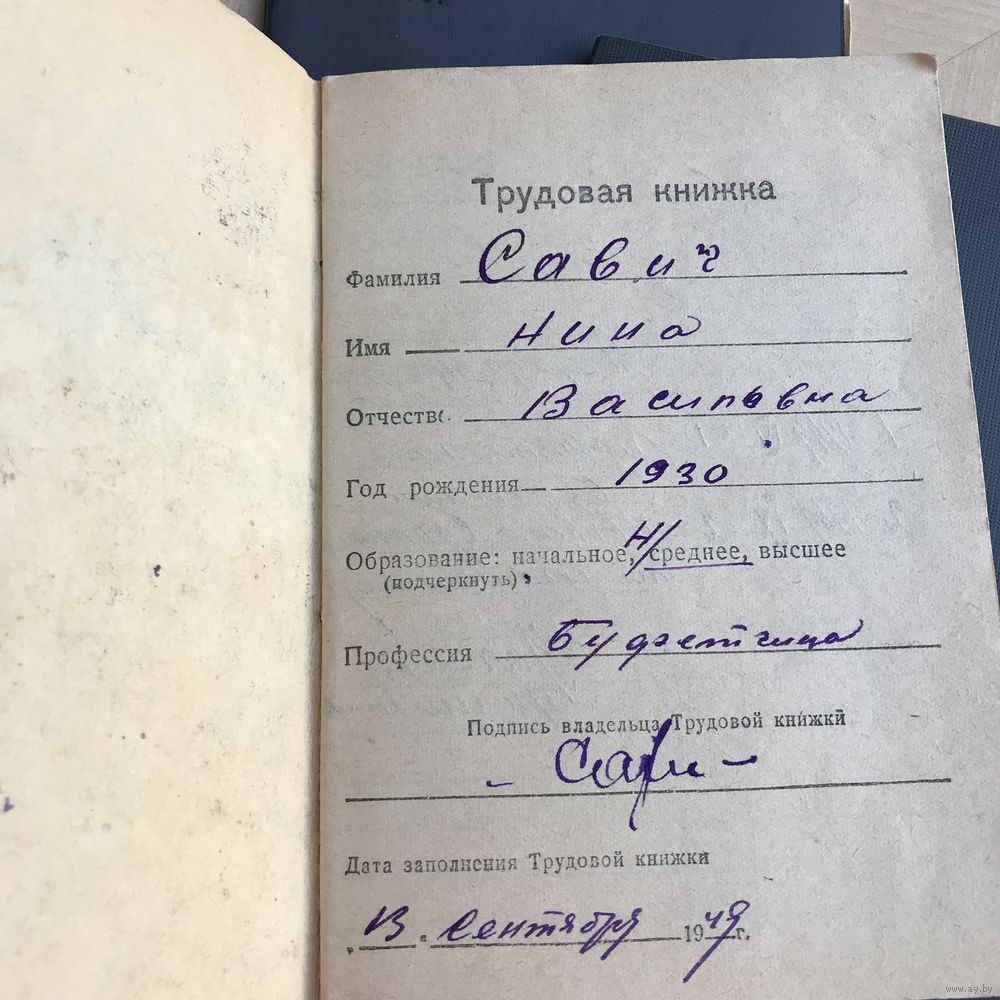 Трудовая книжка
Фамилия Савич
Имя Нина
Отчество Васильевна
Год рождения 1930
Образование: начальное, н/среднее, высшее
(подчеркнуть)
Профессия Буфетчица
Подпись владельца Трудовой книжки
Дата заполнения Трудовой книжки
13 Сентября 1949 г.
www.ay.by